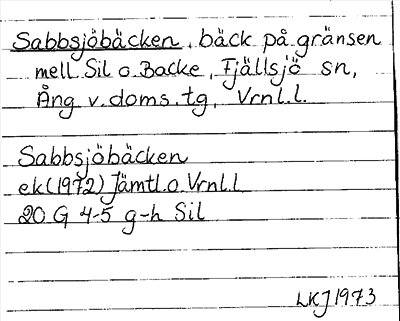 Sabbsjöbäcken, bäck på gränsen
mell. Sil o. Backe, Fjällsjö sn,
Ång. v. doms. tg, Vrnl.l.
Sabbsjöbäcken
ek (1972) Jämtl. o. Vrnl.l
20 G 4-5 g-h Sil
LKJ 1973